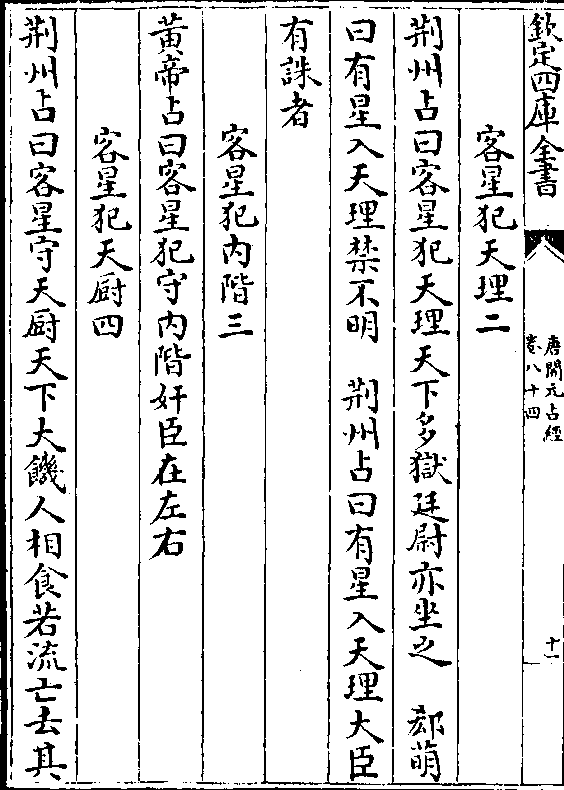 欽定四庫全書
唐開元占經
卷八十四
十一
客星犯天理二
荆州占曰客星犯天理天下多獄廷尉亦坐之　郄萌
曰有星入天理禁不明　荆州占曰有星入天理大臣
有誅者
客星犯内階三
黄帝占曰客星犯守内階奸臣在左右
客星犯天厨四
荆州占曰客星守天厨天下大饑人相食若流亡去其